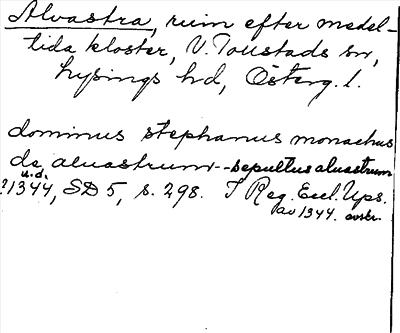 Alvastra, ruin efter medel-
tida kloster, V. Tollstads sn,
Lysings hd, Österg. l.
dominus stephanus monachus
de aluastrum--sepultus aluastrum
u.d.
?1344, SD 5, s. 298. I Reg. Eccl. Ups.
av 1344. avskr.